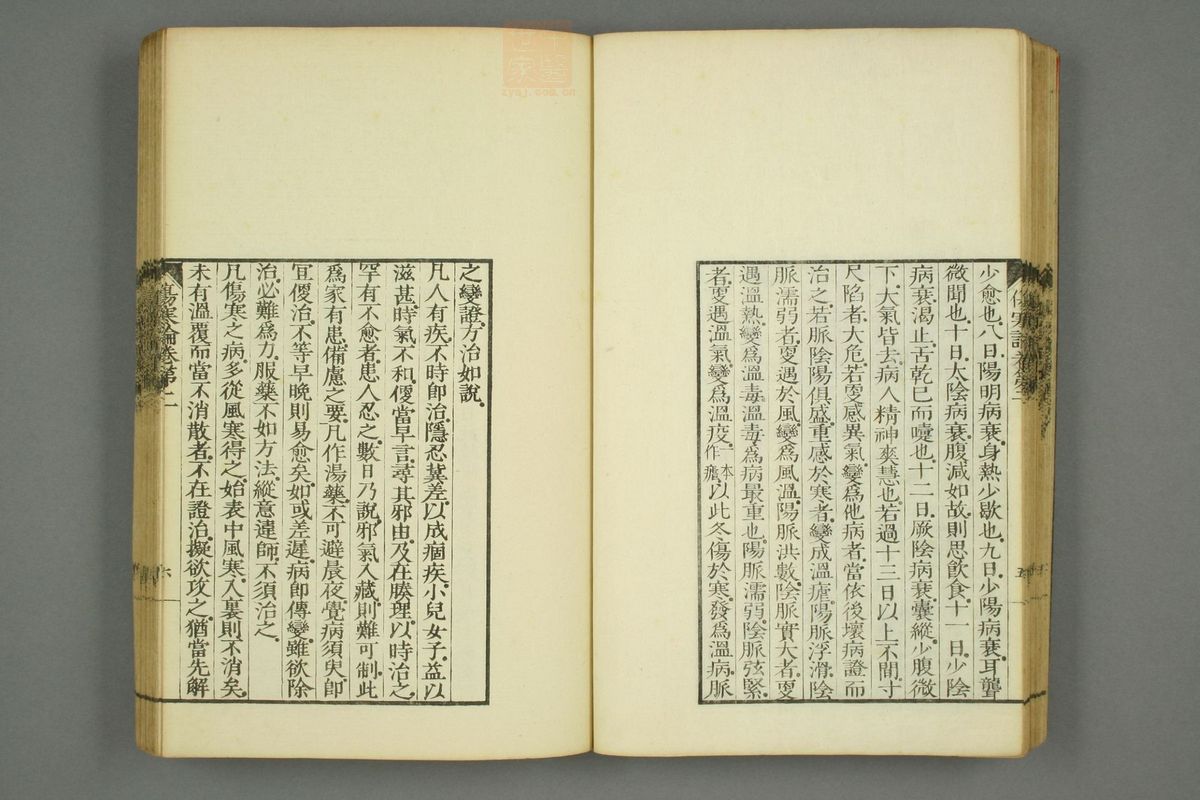 少愈也八日陽明病衰身熱少歇也九日少陽病衰耳聾
微聞也十日太陰病衰腹減如故則思飲食十一日少陰
病衰渴止舌乾已而嚏也十二日厥陰病衰囊縱少腹微
下大氣皆去病人精神爽慧也若過十三日以上不間寸
尺陷者大危若更感異氣變爲他病者當依後壞病證而
治之若脈陰陽俱盛重感於寒者變成溫瘧陽脈浮滑陰
脈濡弱者更遇於風變爲風溫陽脈洪數陰脈實大者更
遇溫熱變爲溫毒溫毒爲病最重也陽脈濡弱陰脈弦緊
者更遇溫氣變爲溫疫一本作瘧以此冬傷於寒發爲溫病脈
之變證方治如說
凡人有疾不時即治隱忍冀差以成痼疾小兒女子益以
滋甚時氣不和便當早言尋其邪由及在腠理以時治之
罕有不愈者患人忍之數日乃說邪氣入藏則難可制此
爲家有患備慮之要凡作湯藥不可避晨夜覺病須臾即
宜便治不等早晚則易愈矣如或差遲病即傳變雖欲除
治必難爲力服藥不如方法縱意違師不須治之
凡傷寒之病多從風寒得之始表中風寒入裏則不消矣
未有溫覆而當不消散者不在證治擬欲攻之猶當先解
傷寒論卷第二
六
中醫世家
zysj.com.cn